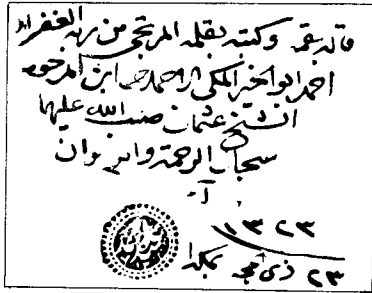 قاله بفمه وكتبه بقلمه المرتجى من ربه الغفران
احمد ابو الخير المكى ابن المرحوم
الشيخ عثمان صب الله عليهما
سجال الرحمة والرضوان
١٣٢٣
٢٣ ذى حجة بمكة